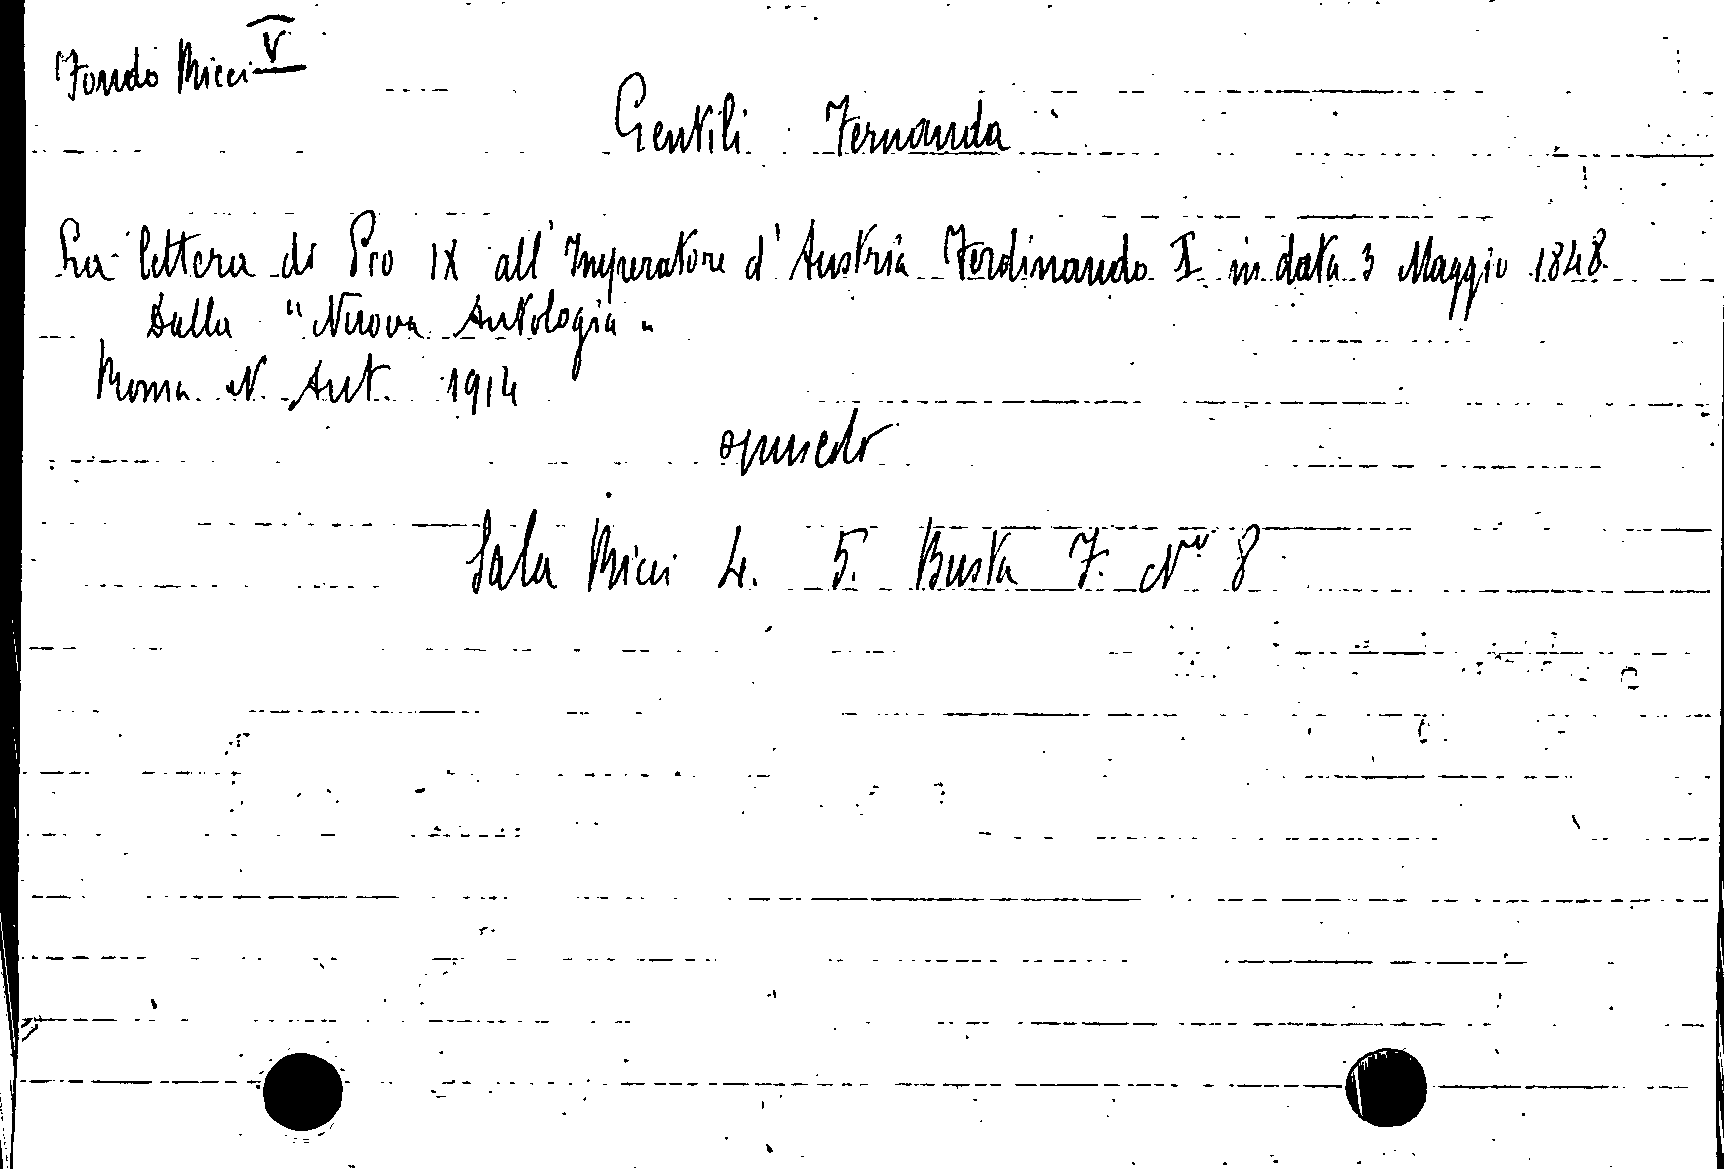 Fondo Ricci V
Gentili Fernanda
La lettera di Pio IX all'Imperatore d'Austria Ferdinando I in data 3 Maggio 1848.
Dalla "Nuova Antologia"
Roma N. Ant. 1914
opuscolo
Sala Ricci 4. 5. Busta 7. No 8